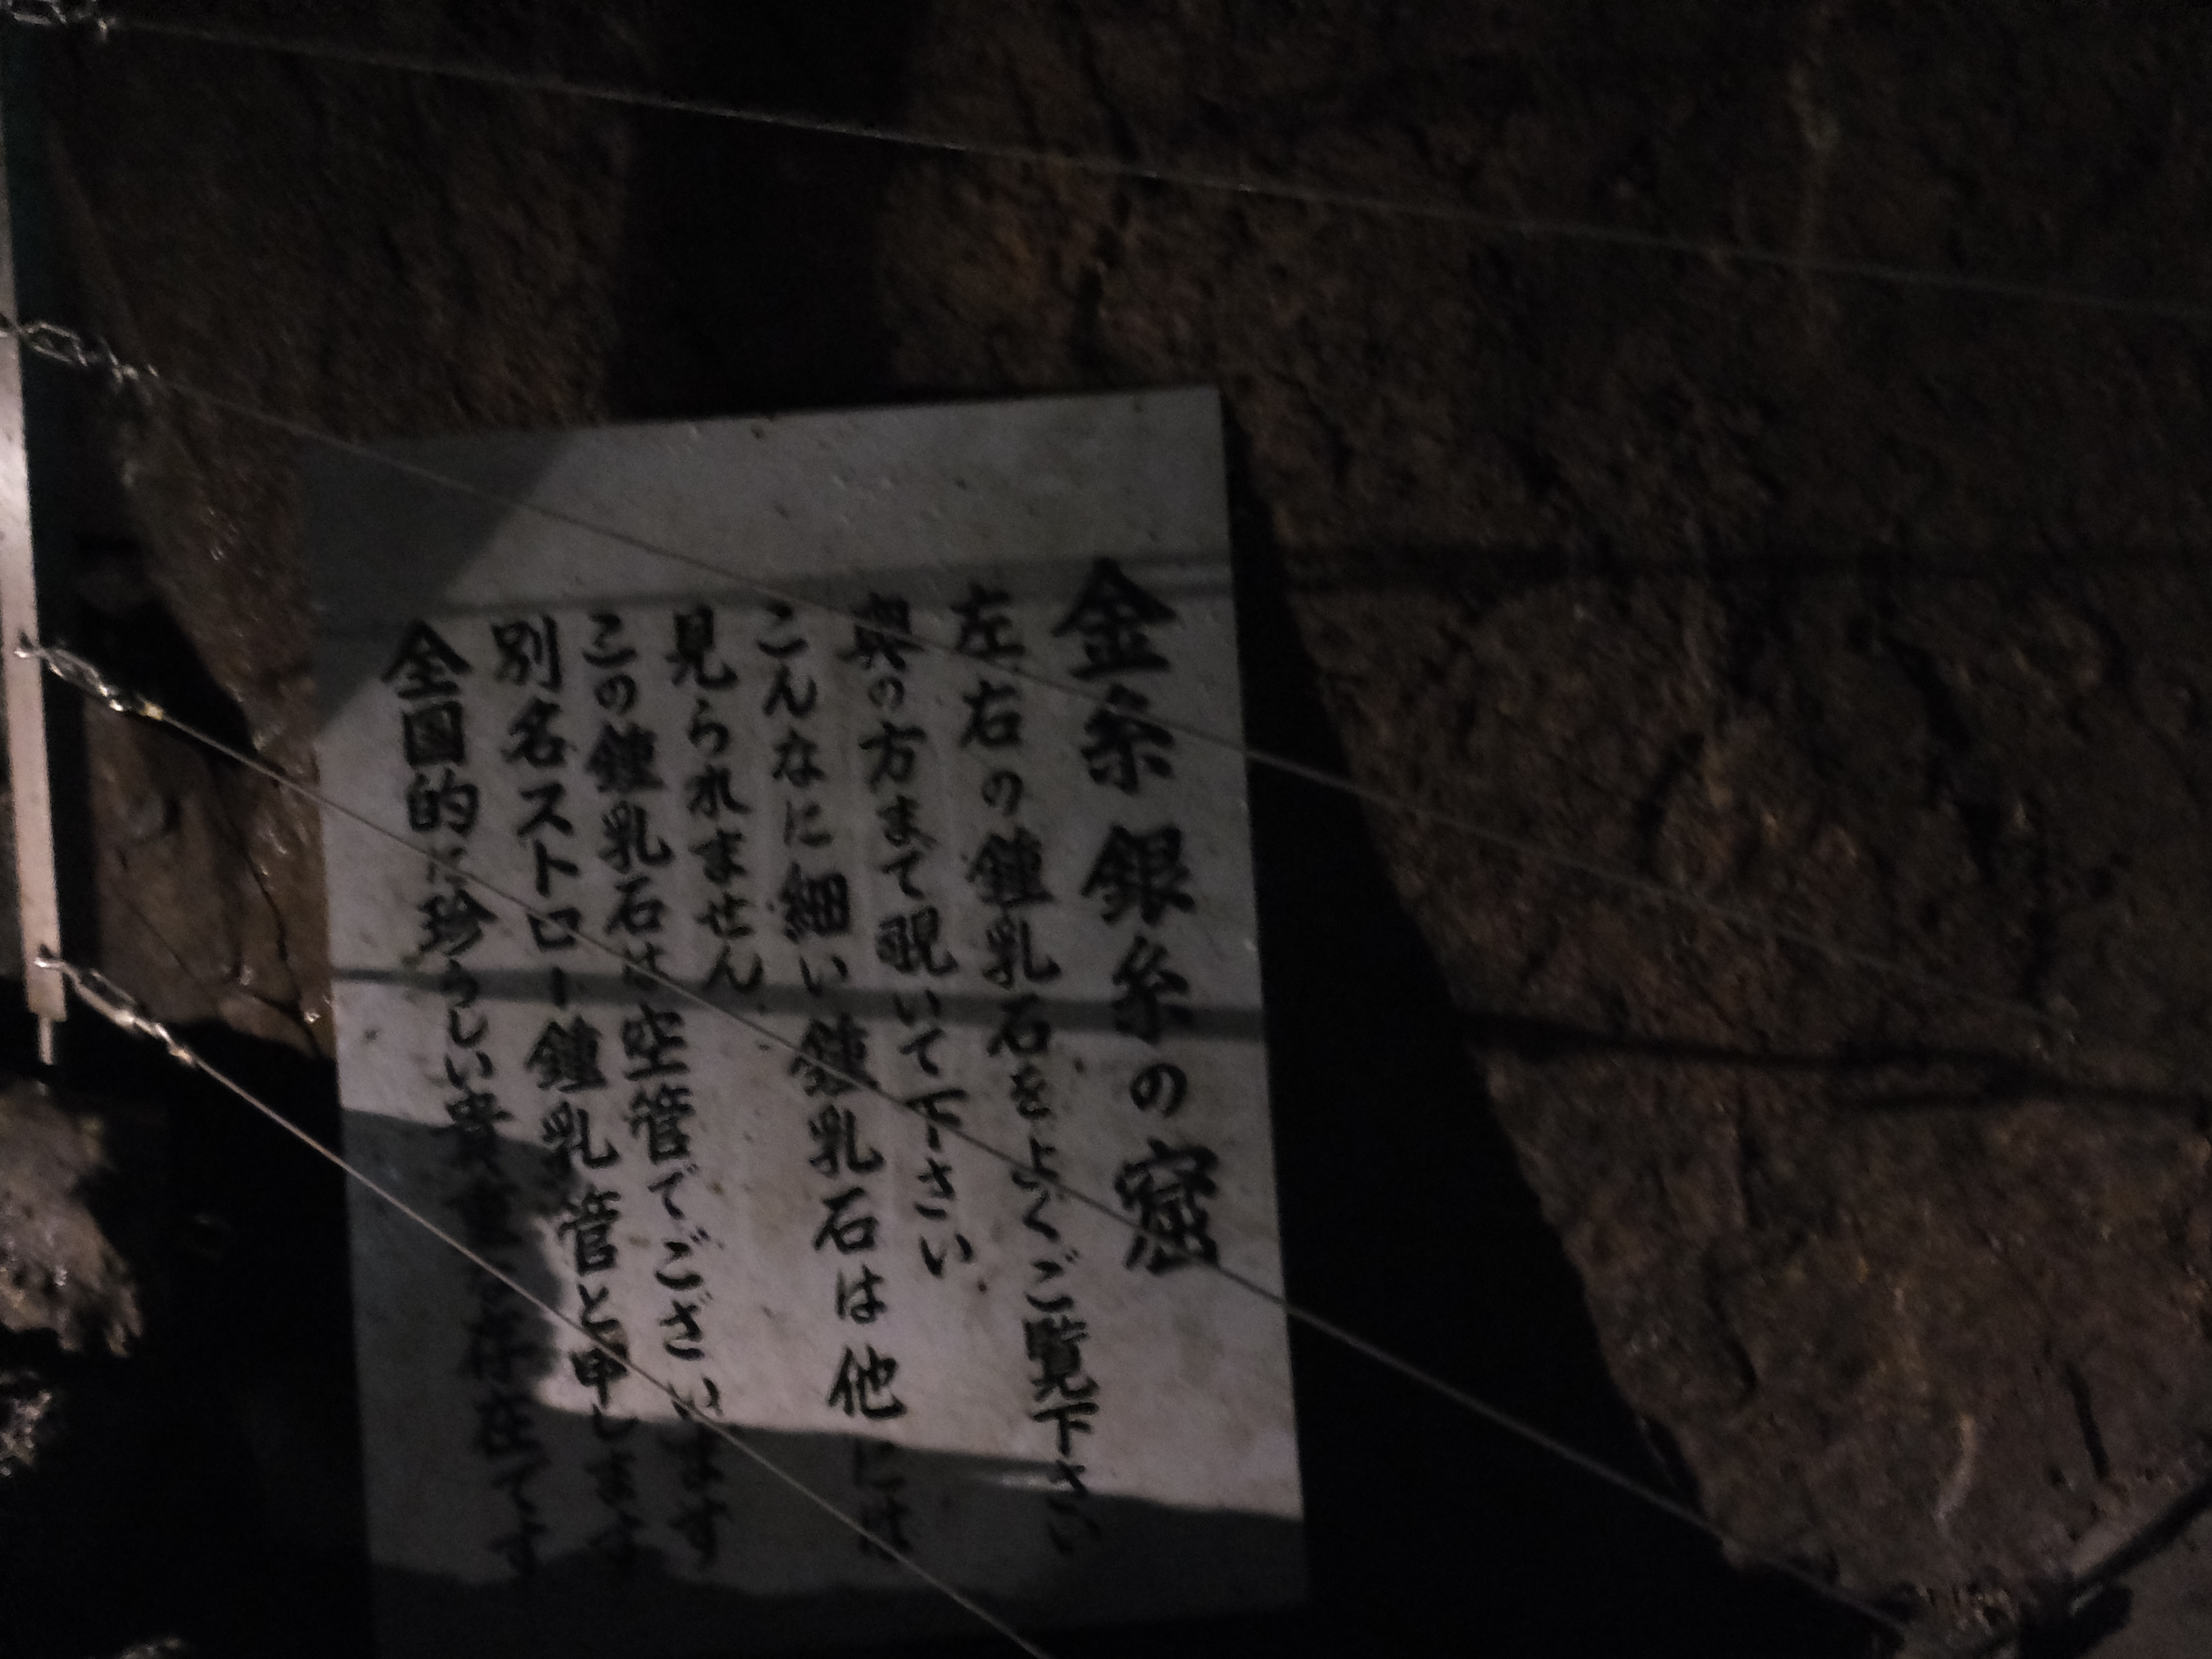 金糸銀糸の窟
左右の鍾乳石をよくご覧下さい
奥の方まで覗いて下さい
こんなに細い鍾乳石は他には
見られません
この鍾乳石は空管でございます
別名ストロー鍾乳管と申します
全国的に珍らしい貴重な存在です